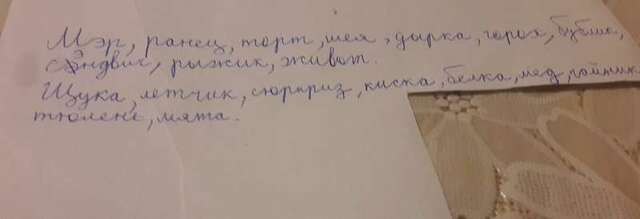 Мэр, ранец, торт, шея, дырка, горох, бублик,
сэндвич, рыжик, живот.
Щука, летчик, сюрприз, киска, белка, мед, гойник
тюлень, мята.